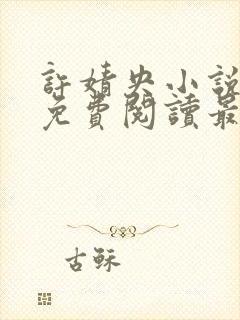 許婧央小說
免費閱讀最
古穌